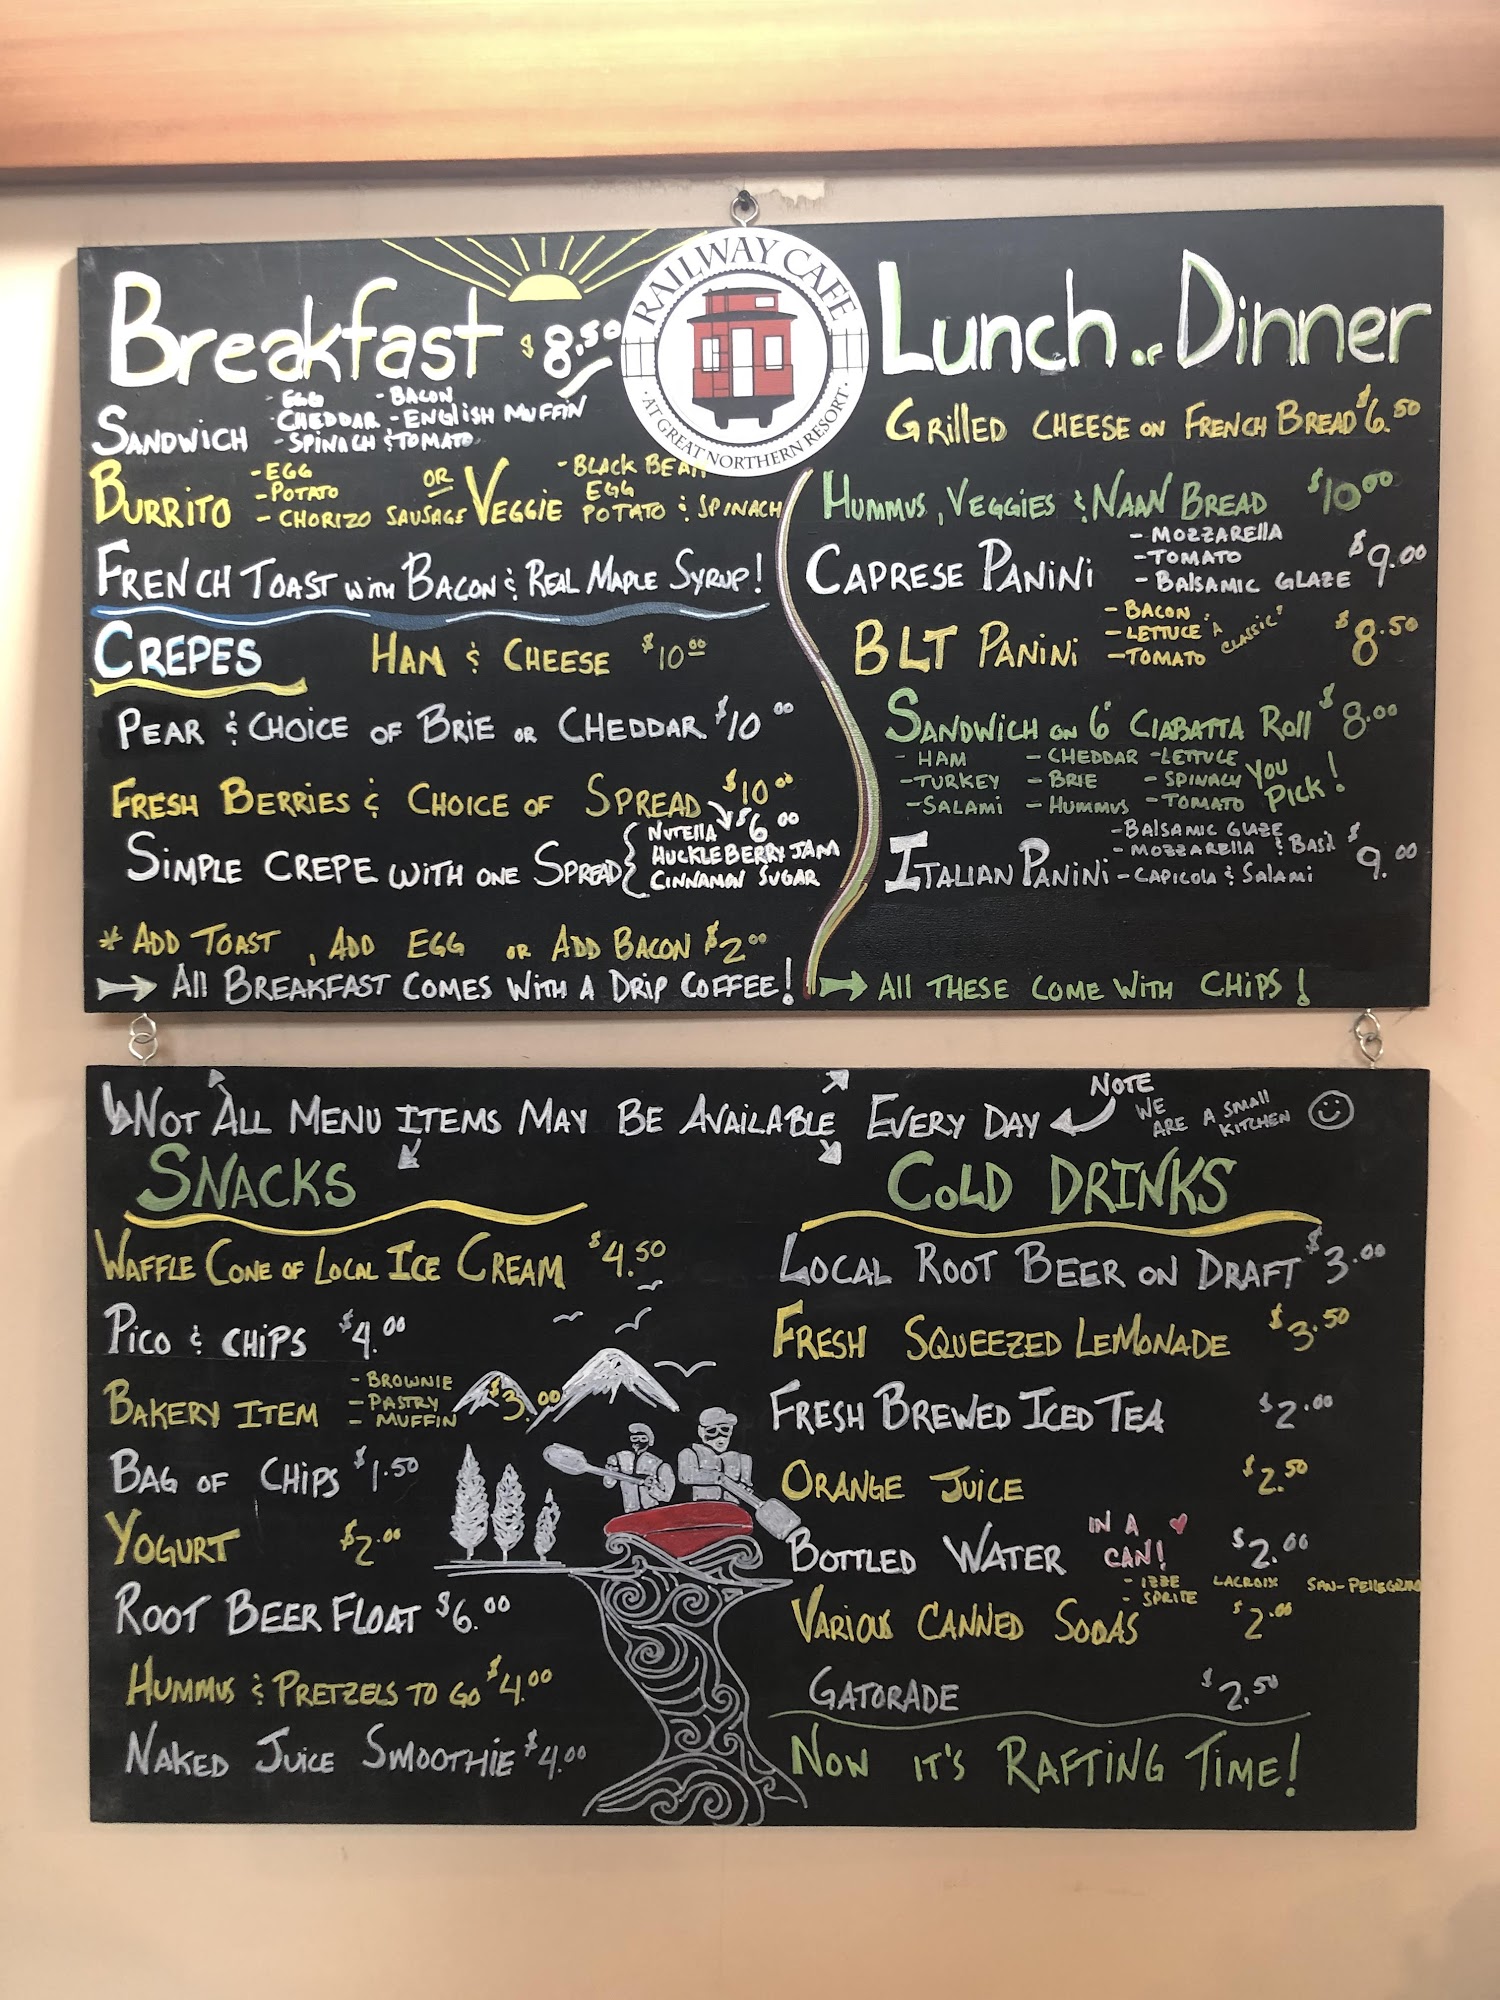 RAILWAY CAFE
AT GREAT NORTHERN RESORT
Breakfast $8.50
SANDWICH
- EGG - BACON
- CHEDDAR - ENGLISH MUFFIN
- SPINACH & TOMATO
BURRITO
- EGG
- POTATO
- CHORIZO SAUSAGE
OR
VEGGIE
- BLACK BEAN
EGG
POTATO & SPINACH
FRENCH TOAST WITH BACON & REAL MAPLE SYRUP!
CREPES
HAM & CHEESE $10.00
PEAR & CHOICE OF BRIE OR CHEDDAR $10.00
FRESH BERRIES & CHOICE OF SPREAD $10.00
SIMPLE CREPE WITH ONE SPREAD $6.00
NUTELLA
HUCKLEBERRY JAM
CINNAMON SUGAR
* ADD TOAST, ADD EGG OR ADD BACON $2.00
→ All BREAKFAST COMES WITH A DRIP COFFEE!
Lunch or Dinner
GRILLED CHEESE ON FRENCH BREAD $6.50
HUMMUS, VEGGIES & NAAN BREAD $10.00
CAPRESE PANINI $9.00
- MOZZARELLA
- TOMATO
- BALSAMIC GLAZE
BLT PANINI $8.50
- BACON
- LETTUCE
- TOMATO
"A CLASSIC"
SANDWICH ON 6" CIABATTA ROLL $8.00
- HAM - CHEDDAR - LETTUCE
- TURKEY - BRIE - SPINACH
- SALAMI - HUMMUS - TOMATO
YOU PICK!
ITALIAN PANINI $9.00
- BALSAMIC GLAZE
- MOZZARELLA & BASIL
- CAPICOLA & SALAMI
→ All THESE COME WITH CHIPS!
NOT ALL MENU ITEMS MAY BE AVAILABLE EVERY DAY
NOTE
WE ARE A SMALL KITCHEN
SNACKS
WAFFLE CONE OF LOCAL ICE CREAM $4.50
PICO & CHIPS $4.00
BAKERY ITEM $3.00
- BROWNIE
- PASTRY
- MUFFIN
BAG OF CHIPS $1.50
YOGURT $2.00
ROOT BEER FLOAT $6.00
HUMMUS & PRETZELS TO GO $4.00
NAKED JUICE SMOOTHIE $4.00
COLD DRINKS
LOCAL ROOT BEER ON DRAFT $3.00
FRESH SQUEEZED LEMONADE $3.50
FRESH BREWED ICED TEA $2.00
ORANGE JUICE $2.50
BOTTLED WATER IN A CAN! $2.00
VARIOUS CANNED SODAS $2.00
- IZZE LACROIX SAN-PELLEGRINO
- SPRITE
GATORADE $2.50
NOW IT'S RAFTING TIME!